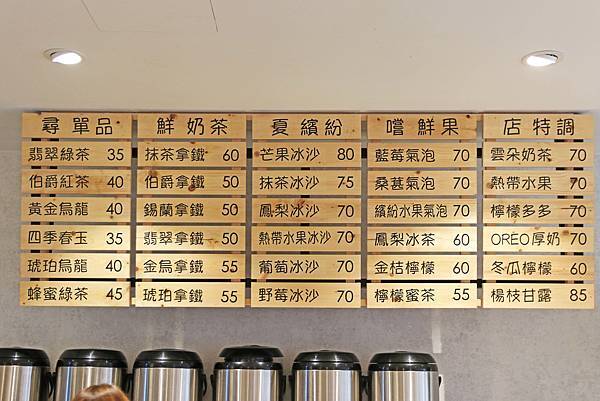 尋單品
翡翠綠茶 35
伯爵紅茶 40
黃金烏龍 40
四季春玉 35
琥珀烏龍 40
蜂蜜綠茶 45
鮮奶茶
抹茶拿鐵 60
伯爵拿鐵 50
錫蘭拿鐵 50
翡翠拿鐵 50
金烏拿鐵 55
琥珀拿鐵 55
夏繽紛
芒果冰沙 80
抹茶冰沙 75
鳳梨冰沙 70
熱帶水果冰沙 70
葡萄冰沙 70
野莓冰沙 70
嚐鮮果
藍莓氣泡 70
桑葚氣泡 70
繽紛水果氣泡 70
鳳梨冰茶 60
金桔檸檬 60
檸檬蜜茶 55
店特調
雲朵奶茶 70
熱帶水果 70
檸檬多多 70
OREO厚奶 70
冬瓜檸檬 60
楊枝甘露 85